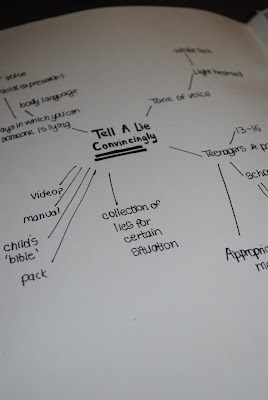 White lies
Light hearted
Tone of voice
voice
facial expressions
body language
ways in which you can
someone is lying
Tell A Lie
Convincingly
13-16
Teenagers &
video?
manual
child's
'bible'
pack
collection of
lies for
certain
situation